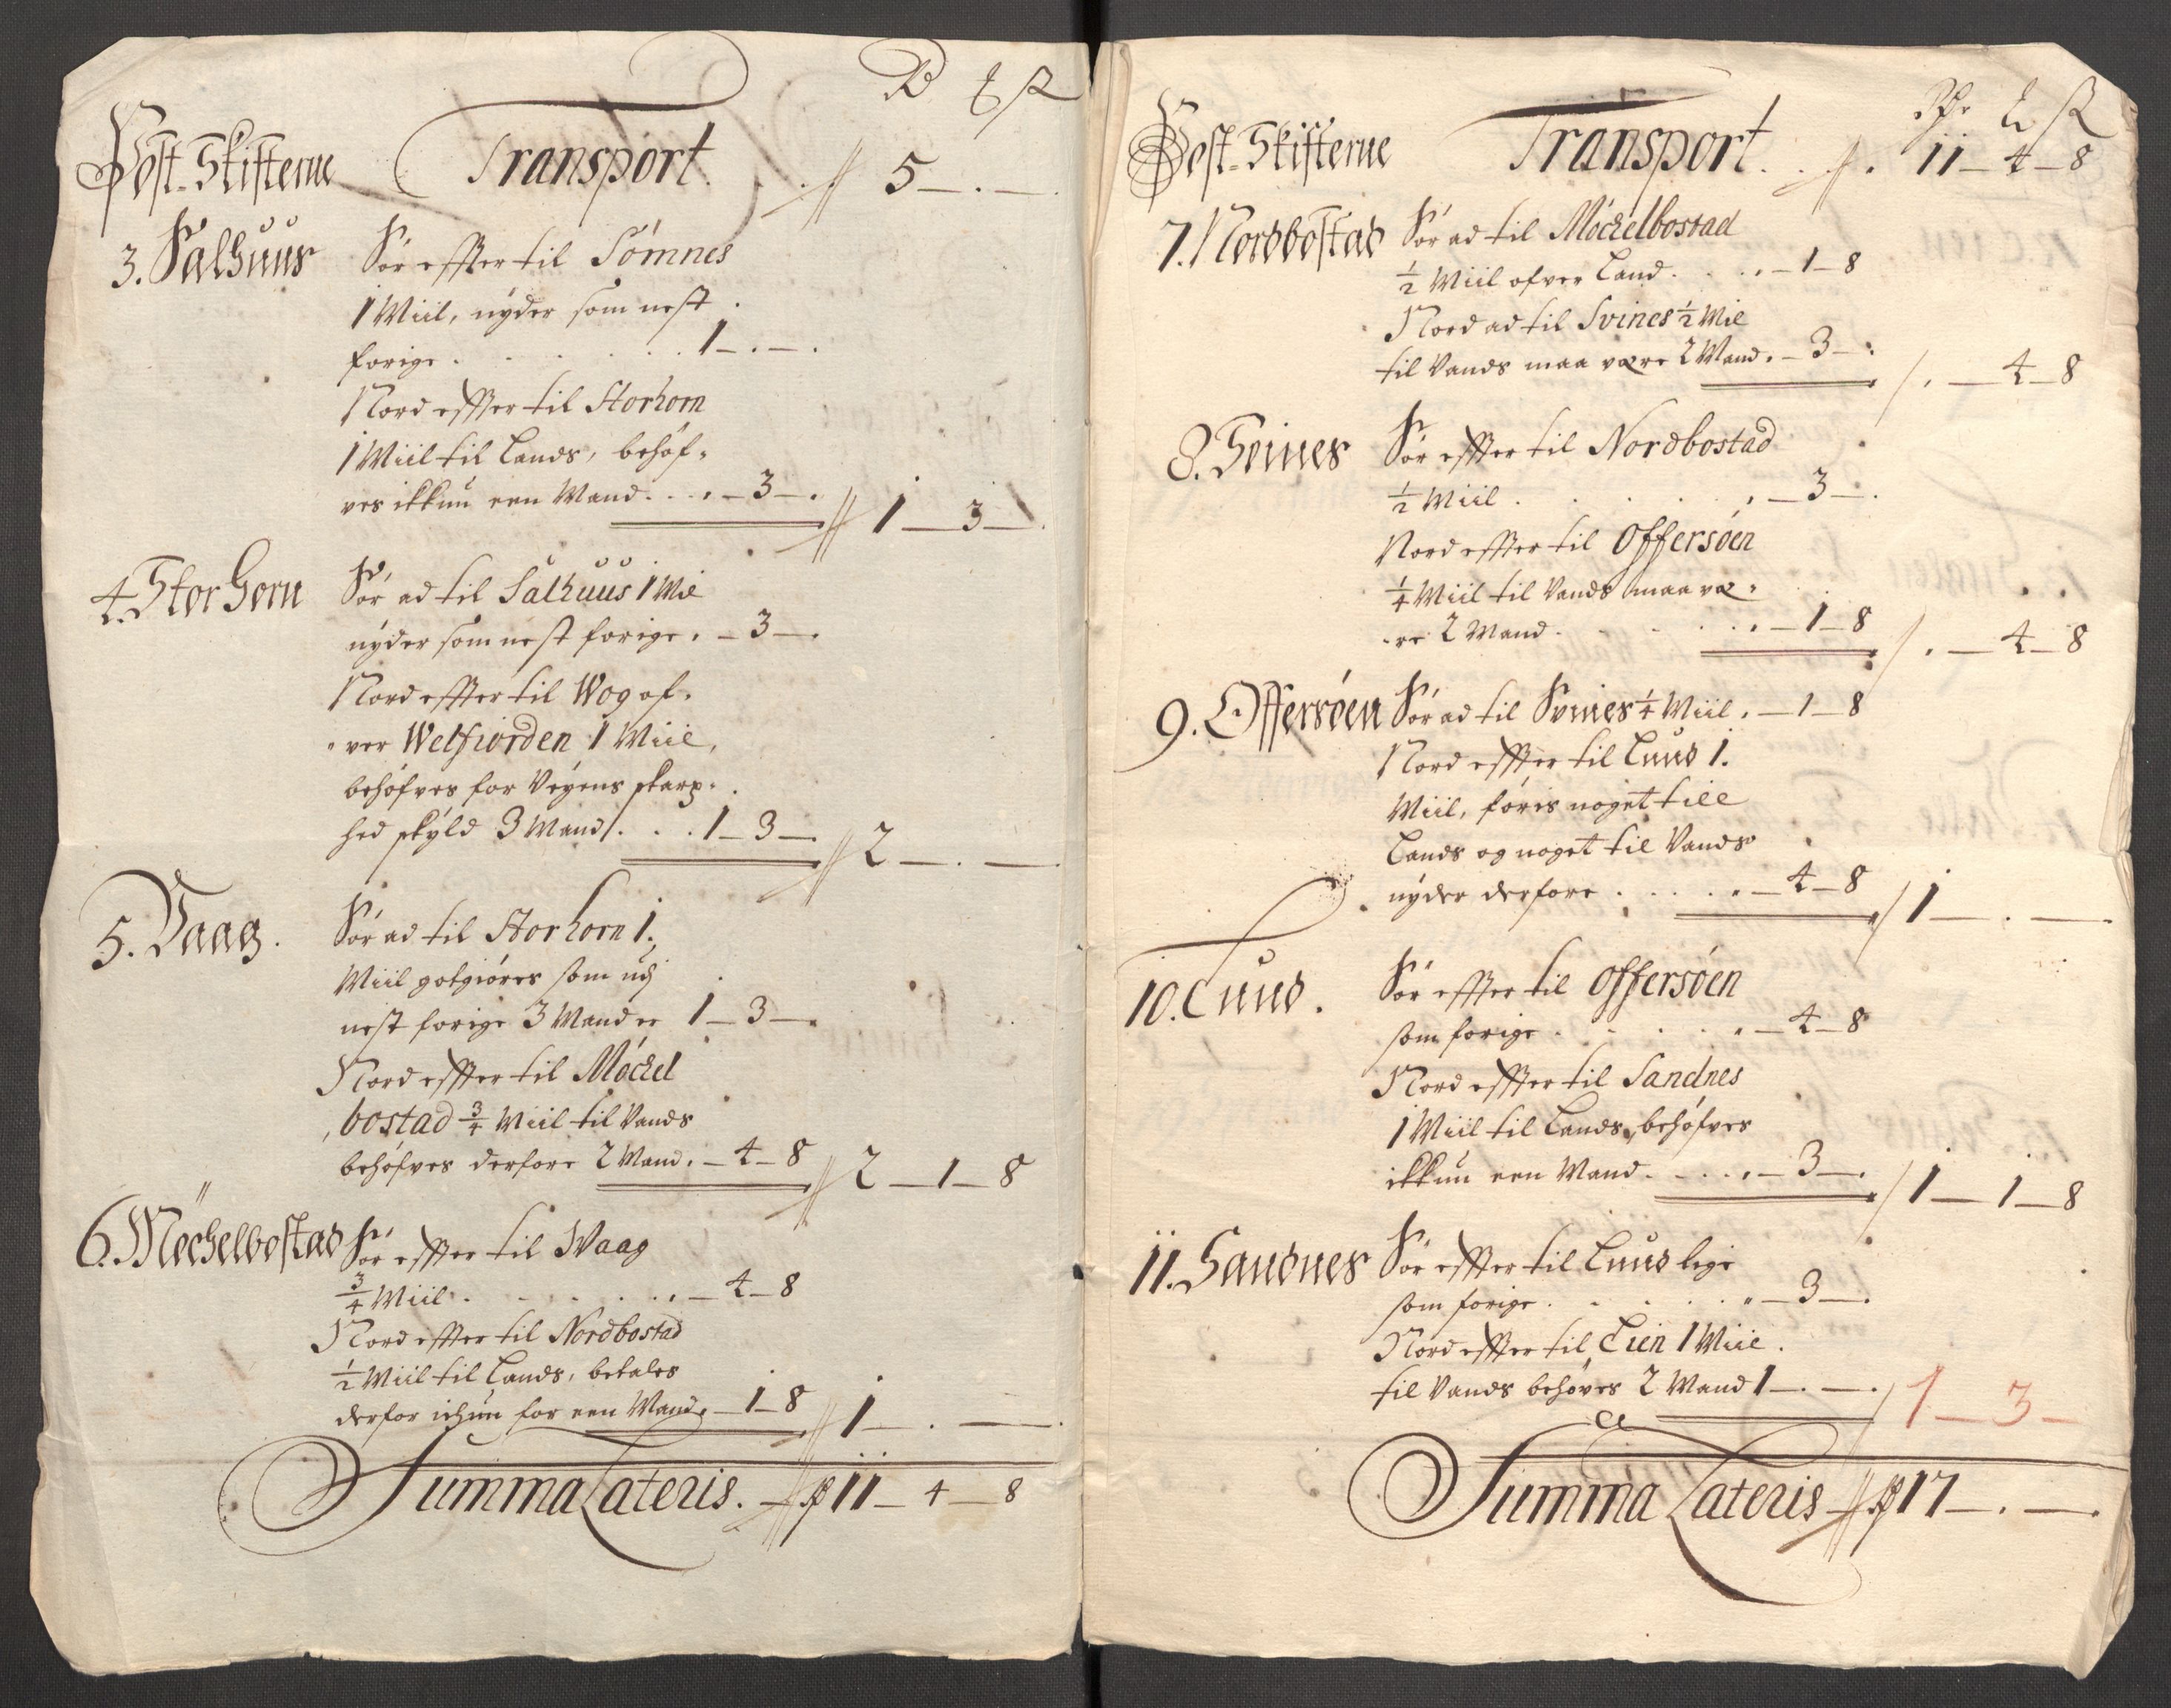 Post-Skifterne Transport. 5 — . —
3. Salhuus Sør effter til Sømnes
1 Miil, nyder som nest
forige . . . . . . 1 — . — .
Nord effter til Storhorn
1 Miil til Lands, behøf-
ves ikkun een Mand . . . — 3 — . 1 — 3 — .
4. Storhorn Sør ad til Salhuus 1 Mil
nyder som nest forige . — 3 — .
Nord effter til Wog of-
ver Welfiorden 1 Miil,
behøfves for Veyens skarp-
hed skyld 3 Mand . . . 1 — 3 — . 2 — . —
5. Vaag. Sør ad til Storhorn 1.
Miil gotgiøres som udj
nest forige 3 Mand er 1 — 3 — .
Nord effter til Møckel
bostad 3/4 Miil til Vands
behøfves derfore 2 Mand . — 4 — 8 2 — 1 — 8
6. Møchelbostad Sør effter til Waag
3/4 Miil . . . . . . — 4 — 8
Nord effter til Nordbostad
1/2 Miil til Lands, betales
derfor ichun for een Mand . — 1 — 8 1 — . — .
Summa Lateris . — 11 — 4 — 8
Post-Skifterne Transport . . . 11 — 4 — 8
7. Nordbostad Sør ad til Møckelbostad
1/2 Miil ofver Land . . . — 1 — 8
Nord ad til Svines 1/2 Mil
til Vands maa være 2 Mand . — 3 — . . — 4 — 8
8. Svines Sør effter til Nordbostad
1/2 Miil . . . . . . — 3 — .
Nord effter til Offersøen
1/4 Miil til Vands maa væ-
re 2 Mand . . . . . — 1 — 8 . — 4 — 8
9. Offersøen Sør ad til Svines 1/4 Miil . — 1 — 8
Nord effter til Lund 1.
Miil, føris noget till
Lands og noget til Vands
nyder derfore . . . . . — 4 — 8 1 — . —
10. Lund. Sør effter til Offersøen
som forige . . . . . — 4 — 8
Nord effter til Sandnes
1 Miil til Lands, behøfves
ikkun een Mand . . . . — 3 — . 1 — 1 — 8
11. Sandnes Sør effter til Lund lige
som forige . . . . . — 3 — .
Nord effter til Lien 1 Miil.
til Vands behøves 2 Mand 1 — . — . 1 — 3 —
Summa Lateris — 17 — . — .